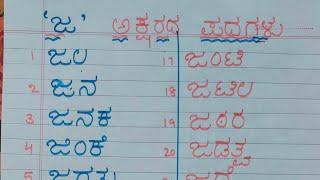 'ಜ' ಅಕ್ಷರದ ಪದಗಳು
1 ಜಲ 17 ಜಂಟಿ
2 ಜನ 18 ಜಟಿಲ
3 ಜನಕ 19 ಜಠರ
4 ಜಂಕೆ 20 ಜಡತ್ವ
5